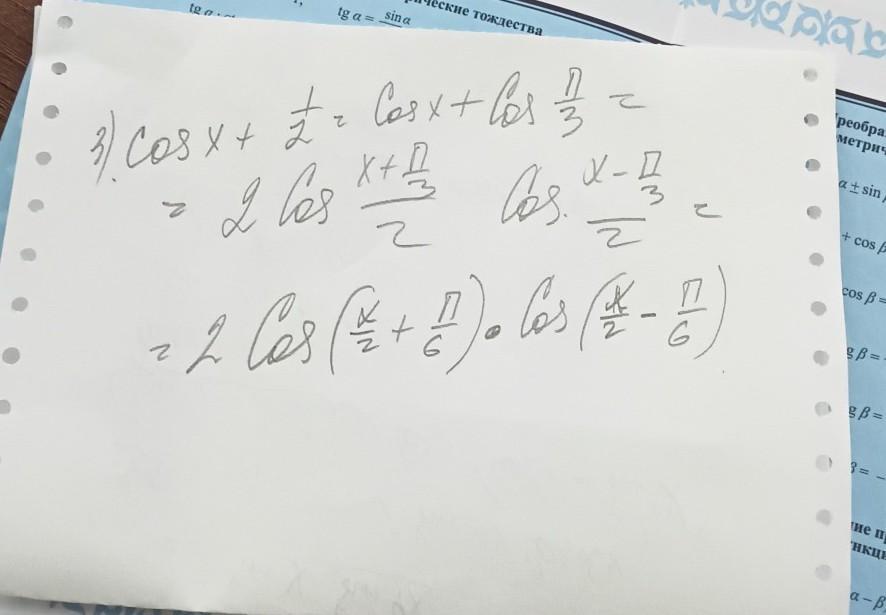 рические тождества
tg α = sinα
3) Cos x + 1/2 = Cos x + Cos π/3 =
= 2 Cos (x + π/3)/2 Cos (x - π/3)/2 =
= 2 Cos (x/2 + π/6) · Cos (x/2 - π/6)
Преобра
метрич
α ± sin
+ cos β
cos β =
g β =
g β =
β =
ие п
нкци
α – β